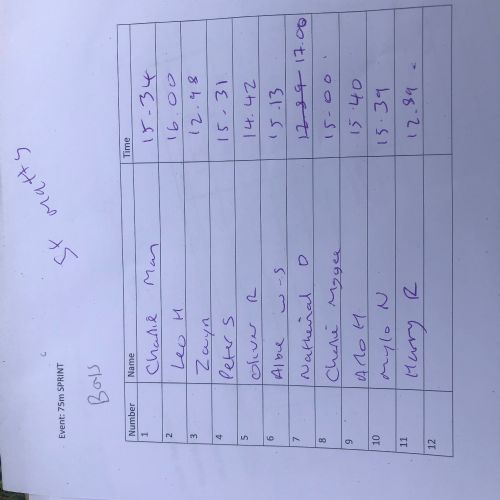 5x matty
Event: 75m SPRINT
Boys
Number Name Time
1 Charlie Man 15.34
2 Leo H 16.00
3 Zayn 12.98
4 Peter S 15.31
5 Oliver R 14.42
6 Albie W-S 15.13
7 Nathenial D 17.00
8 Charlie Mygee 15.00
9 Arlo H 15.40
10 Mylo N 15.39
11 Harry R 12.89.
12